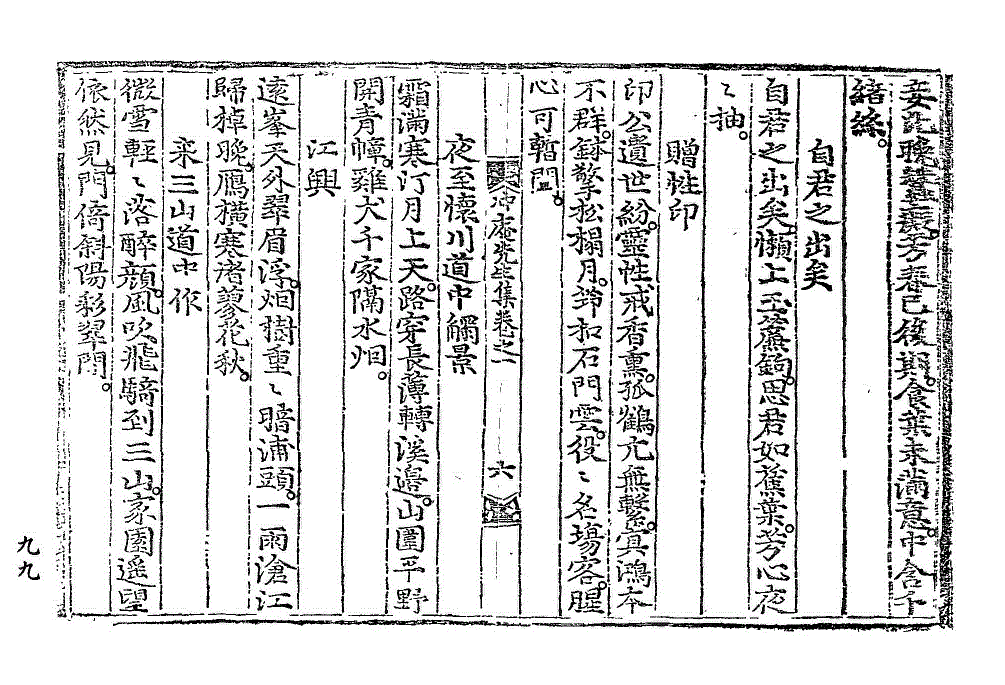 妾化晚蠶蛾。芳春已後期。食葉未滿意。中含千
緖絲。
自君之出矣
自君之出矣。懶上玉簾鉤。思君如蕉葉。芳心夜
〻抽。
贈性印
印公遺世紛。靈性戒香熏。孤鶴亢無繫。冥鴻本
不群。錸擎松榻月。筇扣石門雲。役〻名場客。腥
心可暫盥。
冲庵先生集卷之一
六
夜至懷川道中觸景
霜滿寒汀月上天。路穿長薄轉溪邉。山圍平野
開青幛。雞犬千家隔水烟。
江興
遠峯天外翠眉浮。烟樹重〻暗浦頭。一雨滄江
歸棹晚。鴈橫寒渚蓼花秋。
来三山道中作
微雪輕〻落醉顔。風吹飛騎到三山。家園遥望
依然見。門倚斜陽彩翠閒。
九九